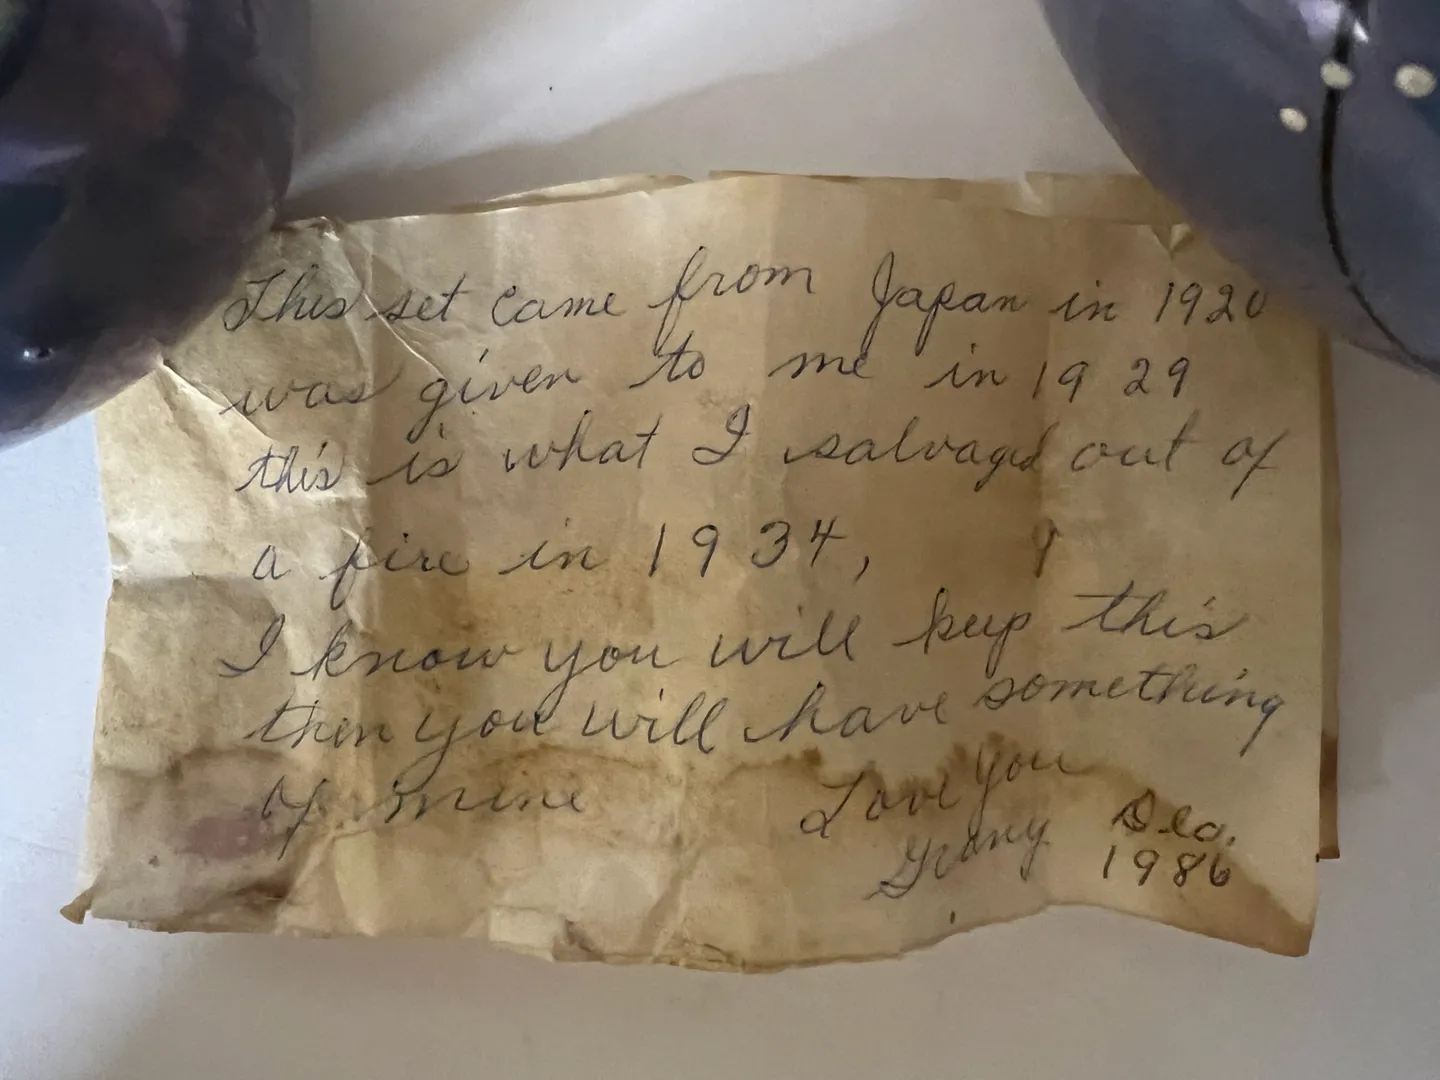 This set came from Japan in 1920
was given to me in 1929
this is what I salvaged out of
a fire in 1934,
I know you will keep this
then you will have something
of mine
Love You
Grany
Dec.
1986